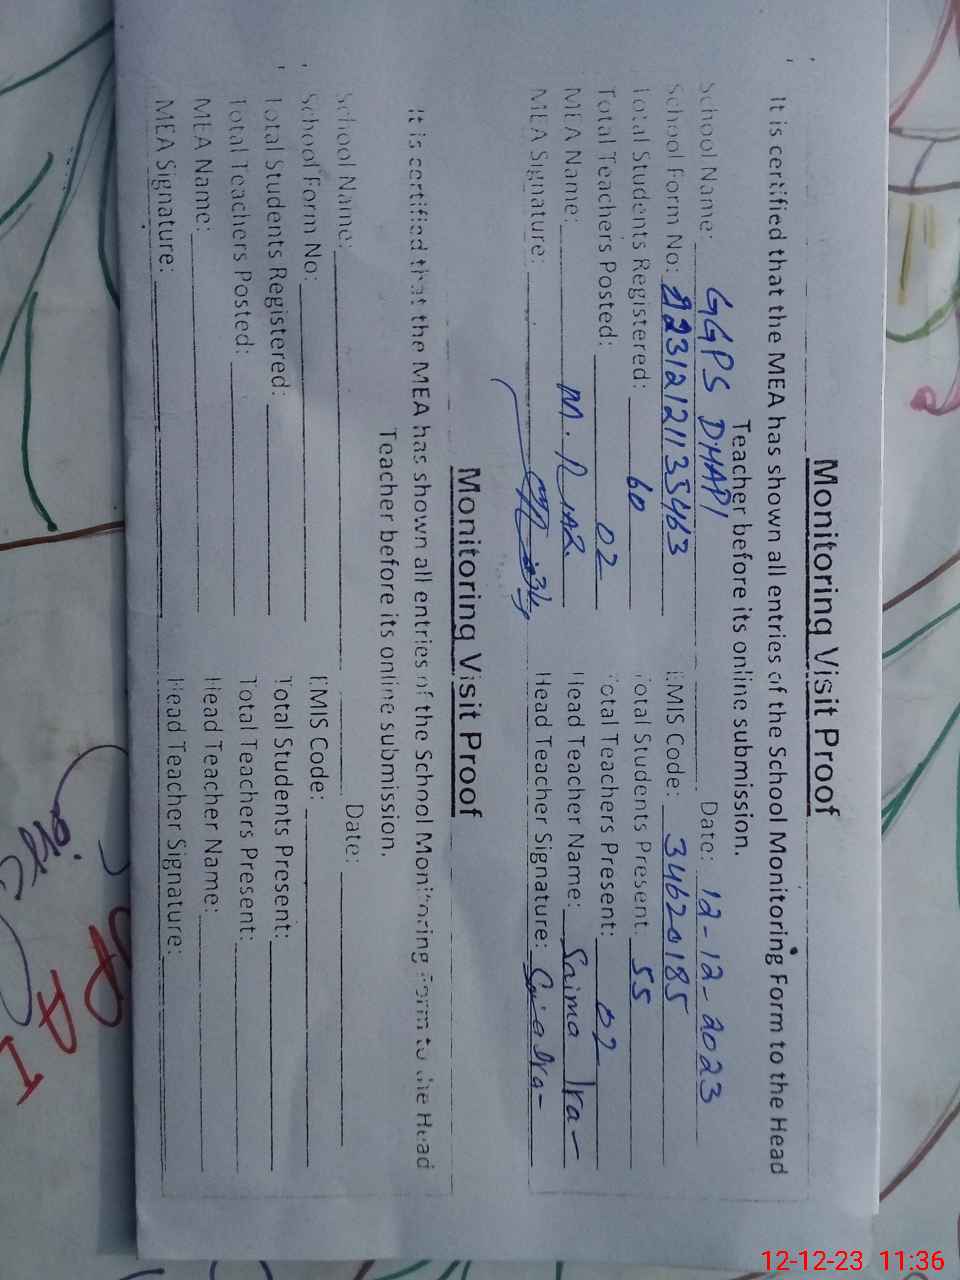 Monitoring Visit Proof
It is certified that the MEA has shown all entries of the School Monitoring Form to the Head
Teacher before its online submission.
School Name: GGPS DHAPI Date: 12-12-2023
School Form No: 2312121135463 EMIS Code: 34620185
Total Students Registered: 60 Total Students Present: 55
Total Teachers Posted: 02 Total Teachers Present: 02
MEA Name: M. Riaz Head Teacher Name: Saima Ira-
MEA Signature: Head Teacher Signature:
Monitoring Visit Proof
It is certified that the MEA has shown all entries of the School Monitoring Form to the Head
Teacher before its online submission.
School Name: Date:
School Form No: EMIS Code:
Total Students Registered: Total Students Present:
Total Teachers Posted: Total Teachers Present:
MEA Name: Head Teacher Name:
MEA Signature: Head Teacher Signature:
12-12-23 11:36